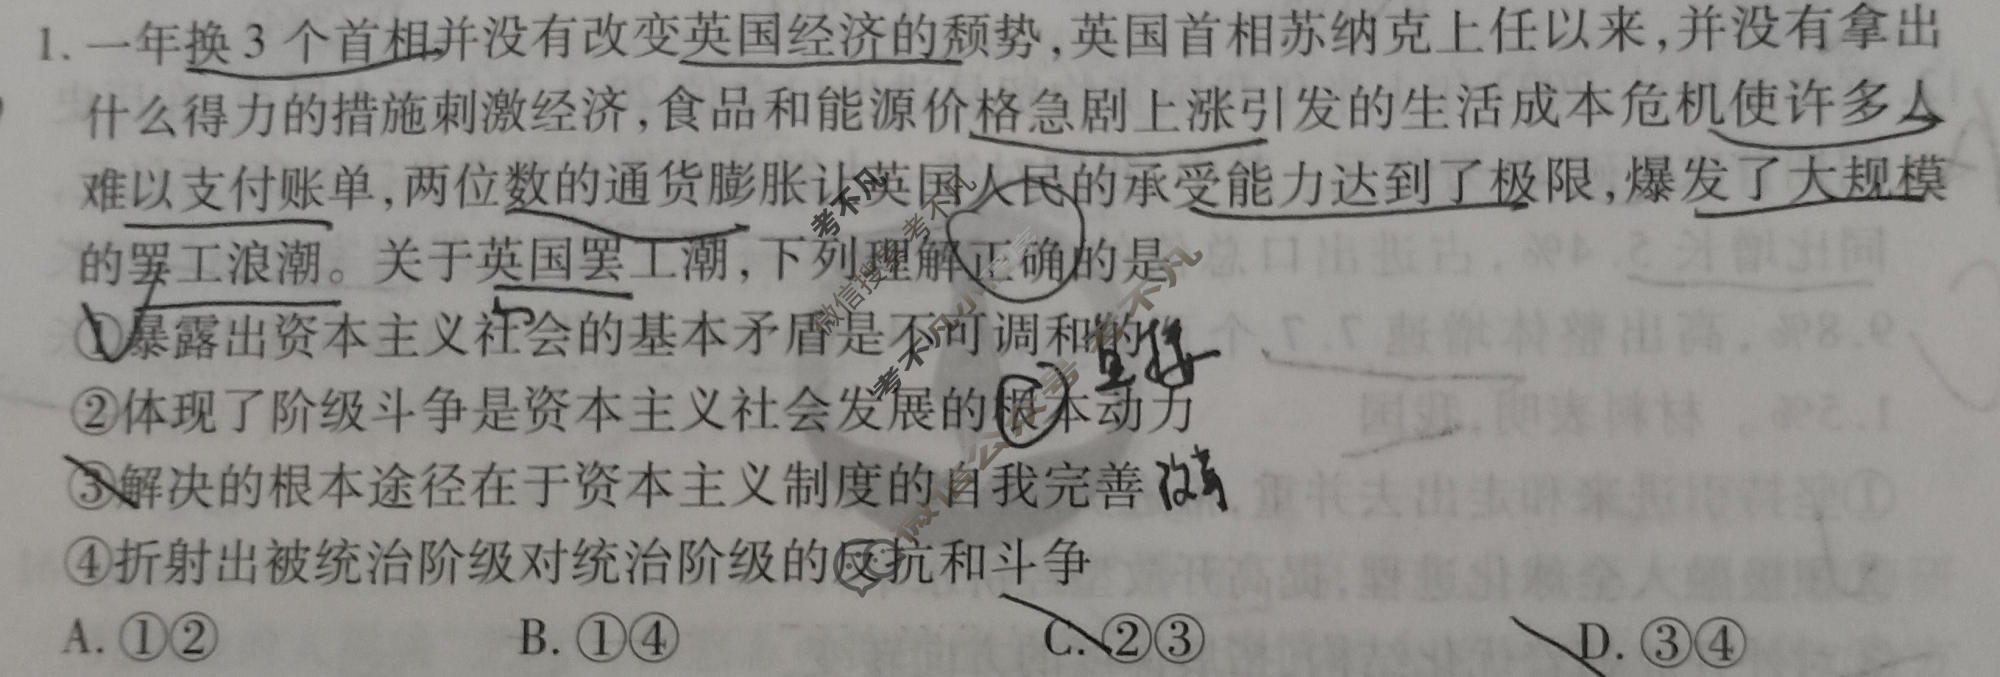 1. 一年换3个首相并没有改变英国经济的颓势,英国首相苏纳克上任以来,并没有拿出
什么得力的措施刺激经济,食品和能源价格急剧上涨引发的生活成本危机使许多人
难以支付账单,两位数的通货膨胀让英国人民的承受能力达到了极限,爆发了大规模
的罢工浪潮。关于英国罢工潮,下列理解正确的是
①暴露出资本主义社会的基本矛盾是不可调和的
直接
②体现了阶级斗争是资本主义社会发展的根本动力
③解决的根本途径在于资本主义制度的自我完善 改革
④折射出被统治阶级对统治阶级的反抗和斗争
A. ①② B. ①④ C. ②③ D. ③④
同比增长 5.4%,占进出口总
9.8%,高出整体增速 7.7 个
1.5%。材料表明,我国
①坚持引进来和走出去并重,